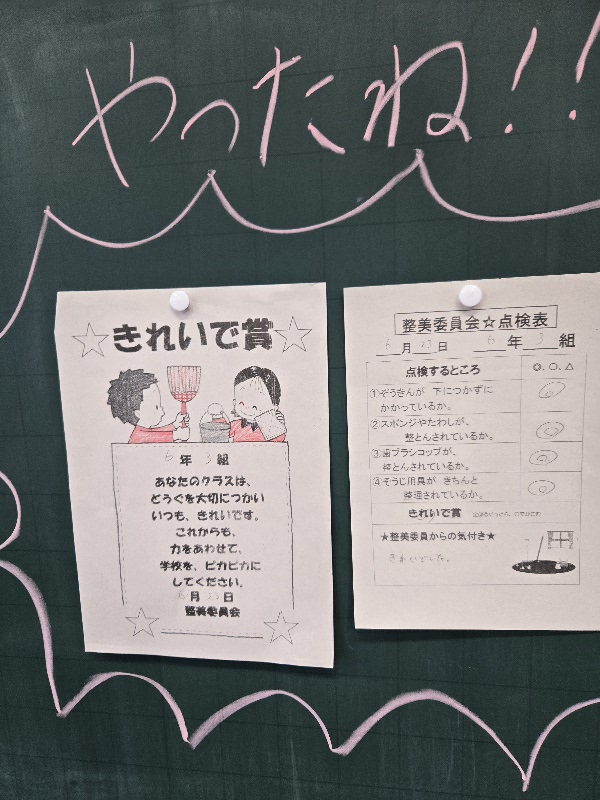 やったね!!
☆きれいで賞☆
6年 3組
あなたのクラスは、
どうぐを大切につかい
いつも、きれいです。
これからも、
力をあわせて、
学校を、ピカピカに
してください。
6月23日
整美委員会
整美委員会☆点検表
6月23日 6年3組
点検するところ ◎.○.△
①ぞうきんが 下につかずに
かかっているか。 ◎
②スポンジやたわしが、
整とんされているか。 ◎
③歯ブラシコップが、
整とんされているか。 ◎
④そうじ用具が きちんと
整理されているか。 ◎
きれいで賞
★整美委員からの気付き★
きれいでした。